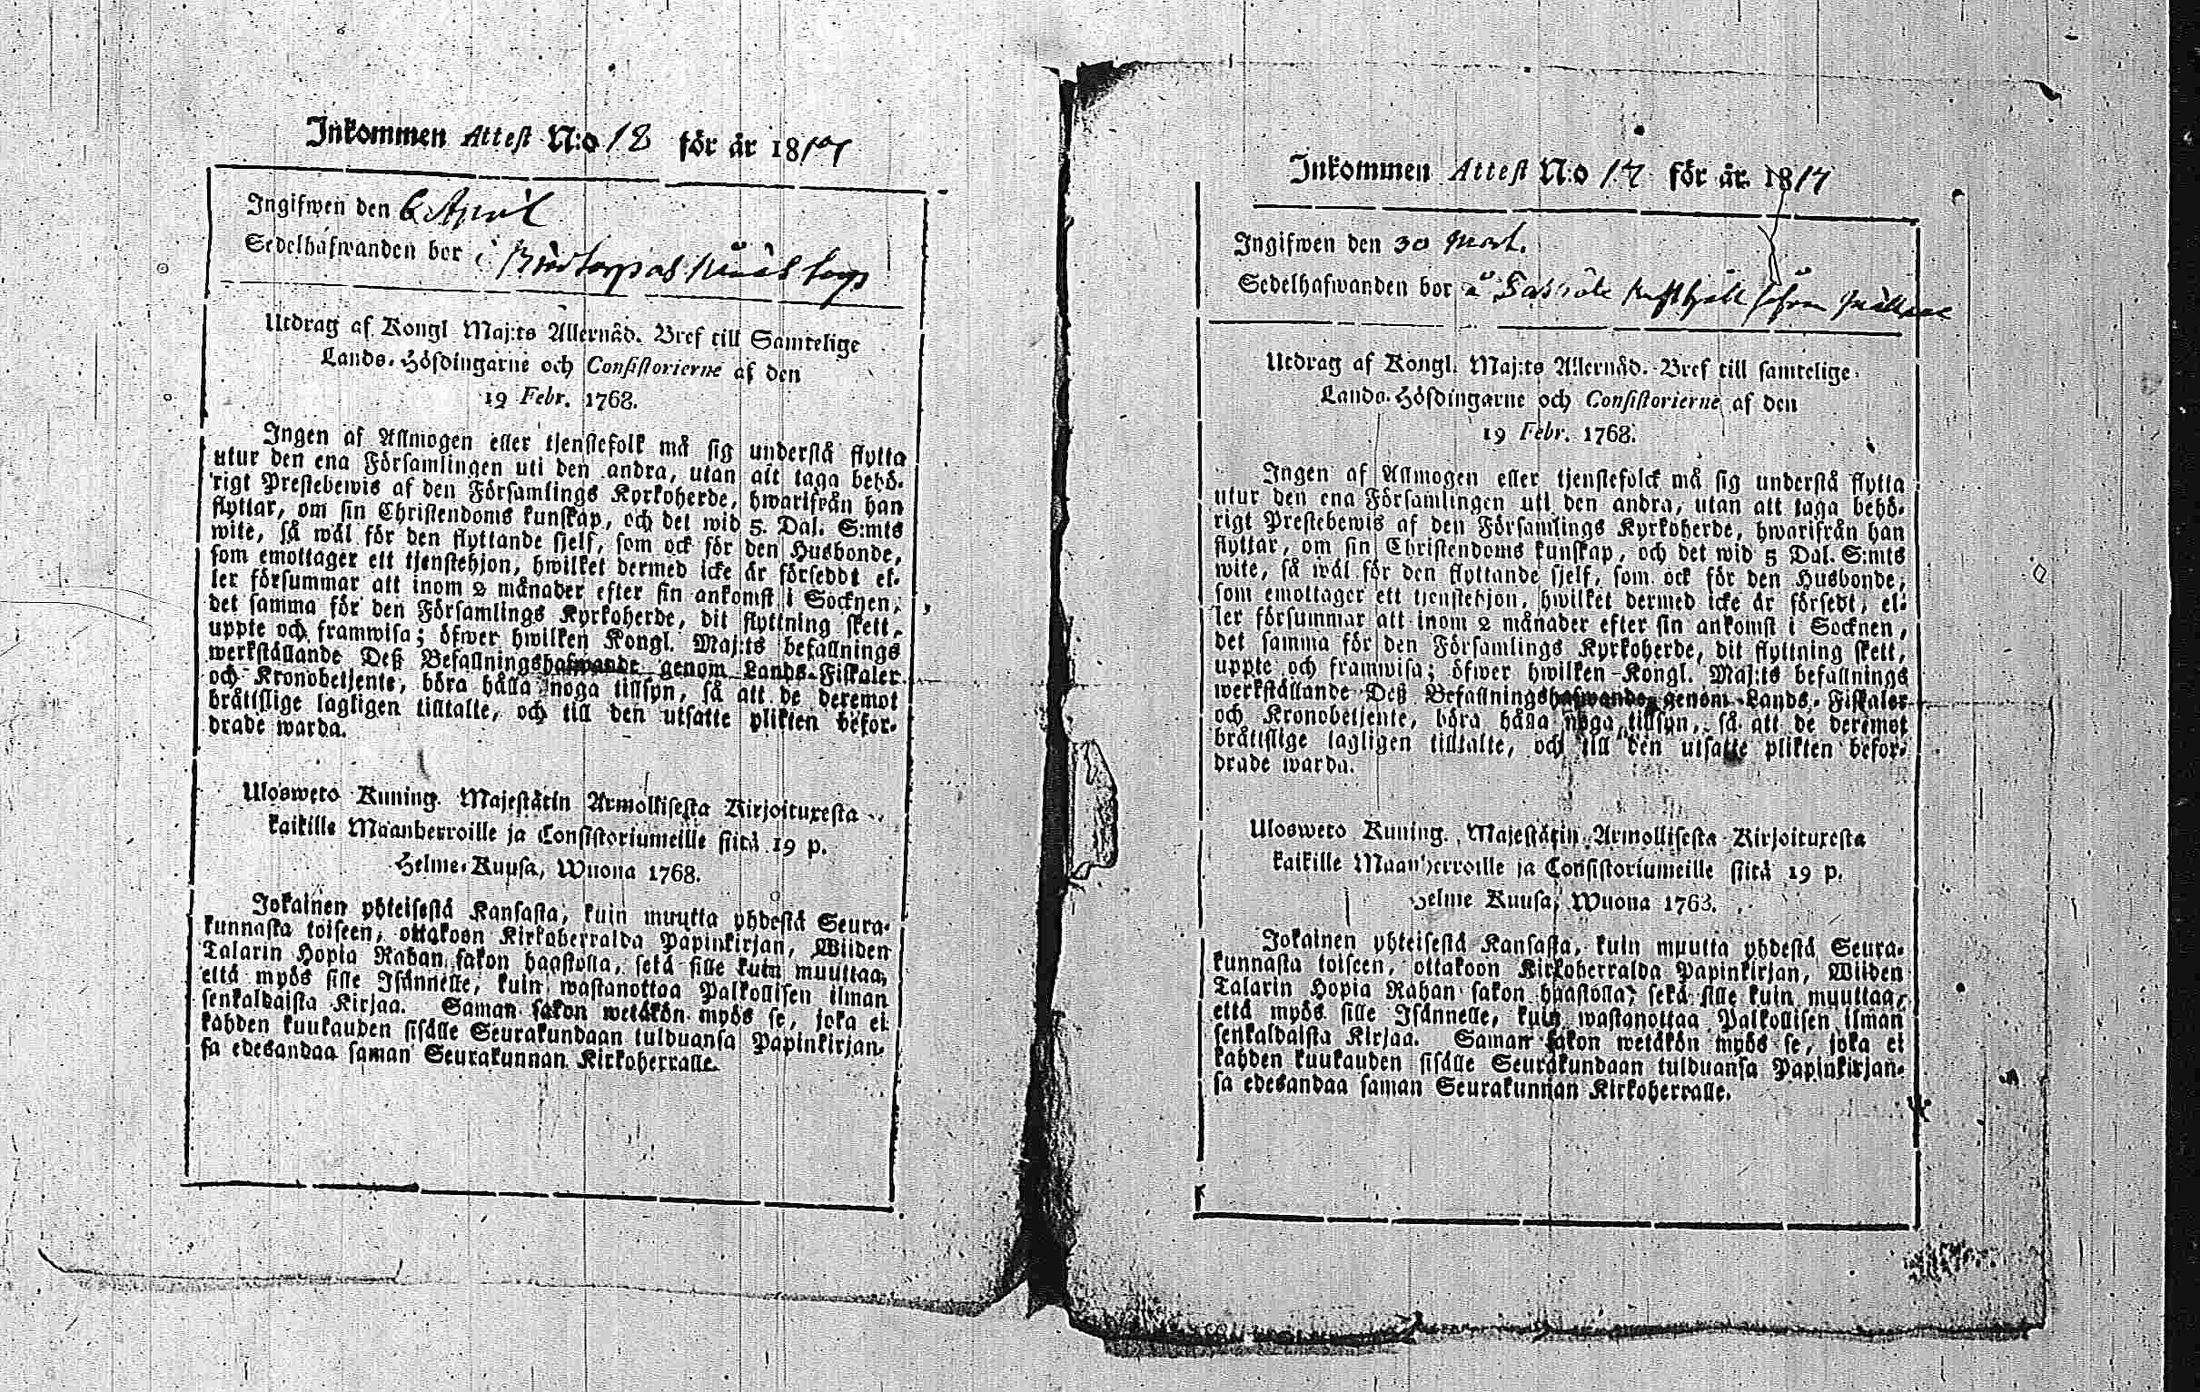 Inkommen Attest N:o 18 för år 1817
Ingifwen den 6 April
Sedelhafwanden bor i
Utdrag af Kongl Maj:ts Allernåd. Bref till Samtelige
Lands-Höfdingarne och Consistorierne af den
19 Febr. 1768.
Ingen af Allmogen eller tjenstefolk må sig understå flytta
utur den ena Församlingen uti den andra, utan att taga behö-
rigt Prestebewis af den Församlings Kyrkoherde, hwarifrån han
flyttar, om sin Christendoms kunskap, och det wid 5. Dal. S:mts
wite, så wäl för den flyttande sjelf, som ock för den Husbonde,
som emottager ett tjenstehjon, hwilket dermed icke är försedd el-
ler försummar att inom 2 månader efter sin ankomst i Socknen,
det samma för den Församlings Kyrkoherde, dit flyttning skett,
uppte och framwisa; öfwer hwilken Kongl. Maj:ts befallnings
werkställande Deß Befallningshafwande genom Lands-Fiskaler
och Kronobetjente, böra hålla noga tillsyn, så att de deremot
bråttslige lagligen tilltalte, och till den utsatte plikten befor-
drade warda.
Ulosweto Kuning. Majestätin Armollisesta Kirjoituxesta
kaikille Maanherroille ja Consistoriumeille siitä 19 p.
Helme-Kuusa, Wuona 1768.
Jokainen yhteisestä Kansasta, kuin muutta yhdestä Seura-
kunnasta toiseen, ottakoon Kirkoherralda Papinkirjan, Wiiden
Talarin Hopia Rahan sakon haastolla, sekä sille kuin muuttaa,
että myös sille Isännelle, kuin wastanottaa Palkollisen ilman
senkaldaista Kirjaa. Saman sakon wetäkön myös se, joka ei
kahden kuukauden sisälle Seurakundaan tulduansa Papinkirjan-
sa edesandaa saman Seurakunnan Kirkoherralle.
Inkommen Attest N:o 17 för år 1817
Ingifwen den 30 Mart.
Sedelhafwanden bor å
Utdrag af Kongl. Maj:ts Allernåd. Bref till samtelige
Lands-Höfdingarne och Consistorierne af den
19 Febr. 1768.
Ingen af Allmogen eller tjenstefolck må sig understå flytta
utur den ena Församlingen uti den andra, utan att taga behö-
rigt Prestebewis af den Församlings Kyrkoherde, hwarifrån han
flyttar, om sin Christendoms kunskap, och det wid 5 Dal. S:mts
wite, så wäl för den flyttande sjelf, som ock för den Husbonde,
som emottager ett tjenstehjon, hwilket dermed icke är försedt, el-
ler försummar att inom 2 månader efter sin ankomst i Socknen,
det samma för den Församlings Kyrkoherde, dit flyttning skett,
uppte och framwisa; öfwer hwilken Kongl. Maj:ts befallnings
werkställande Deß Befallningshafwande genom Lands-Fiskaler
och Kronobetjente, böra hålla noga tillsyn, så att de deremot
bråttslige lagligen tilltalte, och till den utsatte plikten befor-
drade warda.
Ulosweto Kuning. Majestätin Armollisesta Kirjoituxesta
kaikille Maanherroille ja Consistoriumeille siitä 19 p.
Helme Kuusa, Wuona 1768.
Jokainen yhteisestä Kansasta, kuin muutta yhdestä Seura-
kunnasta toiseen, ottakoon Kirkoherralda Papinkirjan, Wiiden
Talarin Hopia Rahan sakon haastolla, sekä sille kuin muuttaa,
että myös sille Isännelle, kuin wastanottaa Palkollisen ilman
senkaldaista Kirjaa. Saman sakon wetäkön myös se, joka ei
kahden kuukauden sisälle Seurakundaan tulduansa Papinkirjan-
sa edesandaa saman Seurakunnan Kirkoherralle.